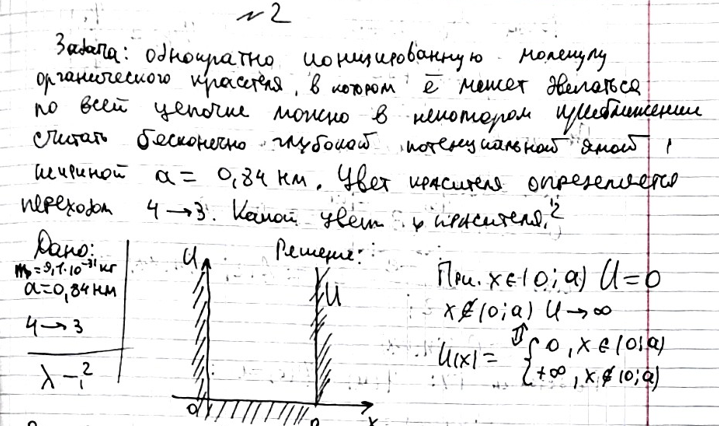 №2
Задача: однократно ионизированную молекулу
органического красителя, в котором ē может двигаться
по всей цепочке можно в некотором приближении
считать бесконечно глубокой потенциальной ямой,
шириной a = 0,84 нм. Цвет красителя определяется
переходом 4→3. Какой цвет у красителя?
Дано:
m₀=9,1·10⁻³¹кг
a=0,84нм
4→3
λ-?
Решение:
U
U
0
a
x
При x∈(0;a) U=0
x∉(0;a) U→∞
⇓
U(x)= { 0, x∈(0;a)
+∞, x∉(0;a)